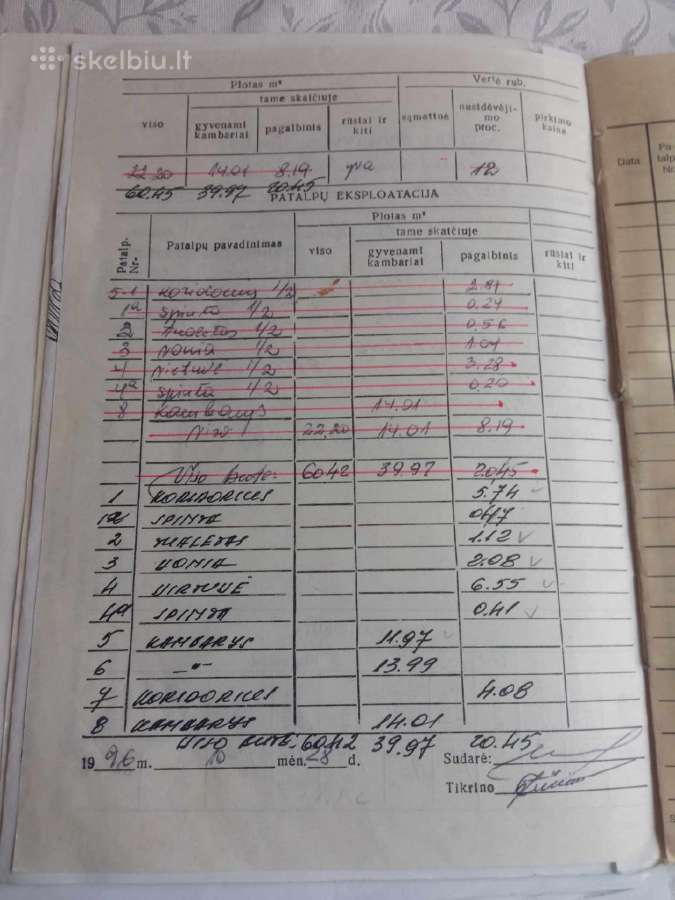 skelbiu.lt
Plotas m² Vertė rub.
tame skaičiuje
viso gyvenami kambariai pagalbinis rūsiai ir kiti sąmatinė nusidėvėjimo proc. pirkimo kaina
22.20 14.01 8.19 yra 12
60.45 39.97 20.45
PATALPŲ EKSPLOATACIJA
Plotas m²
tame skaičiuje
Patalp. Nr. Patalpų pavadinimas viso gyvenami kambariai pagalbinis rūsiai ir kiti
5-1 koridorius 1/2 2.87
1a spinta 1/2 0.24
2 tualetas 1/2 0.56
3 vonia 1/2 1.04
4 virtuvė 1/2 3.28
4a spinta 1/2 0.20
8 kambarys 14.01
Viso 22,20 14.01 8.19
Viso bute: 60.42 39.97 20.45
1 KORIDORIUS 5.74
1a SPINTA 0.47
2 TUALETAS 1.12
3 VONIA 2.08
4 VIRTUVĖ 6.55
4a SPINTA 0.41
5 KAMBARYS 11.97
6 —"— 13.99
7 KORIDORIUS 4.08
8 KAMBARYS 14.01
VISO BUTE: 60.42 39.97 20.45
1996 m. 10 mėn. 28 d. Sudarė:
Tikrino
Data Pa-
talp
No